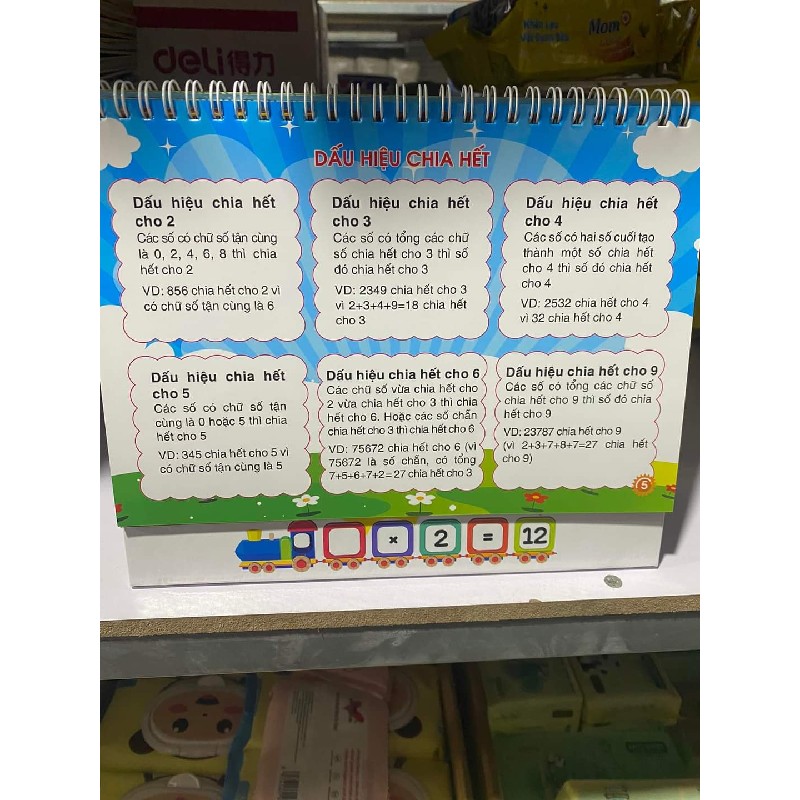 deli得力
Mom
DẤU HIỆU CHIA HẾT
Dấu hiệu chia hết
cho 2
Các số có chữ số tận cùng
là 0, 2, 4, 6, 8 thì chia
hết cho 2
VD: 856 chia hết cho 2 vì
có chữ số tận cùng là 6
Dấu hiệu chia hết
cho 3
Các số có tổng các chữ
số chia hết cho 3 thì số
đó chia hết cho 3
VD: 2349 chia hết cho 3
vì 2+3+4+9=18 chia hết
cho 3
Dấu hiệu chia hết
cho 4
Các số có hai số cuối tạo
thành một số chia hết
cho 4 thì số đó chia hết
cho 4
VD: 2532 chia hết cho 4
vì 32 chia hết cho 4
Dấu hiệu chia hết
cho 5
Các số có chữ số tận
cùng là 0 hoặc 5 thì chia
hết cho 5
VD: 345 chia hết cho 5 vì
có chữ số tận cùng là 5
Dấu hiệu chia hết cho 6
Các chữ số vừa chia hết cho
2 vừa chia hết cho 3 thì chia
hết cho 6. Hoặc các số chẵn
chia hết cho 3 thì chia hết cho 6
VD: 75672 chia hết cho 6 (vì
75672 là số chẵn, có tổng
7+5+6+7+2=27 chia hết cho 3
Dấu hiệu chia hết cho 9
Các số có tổng các chữ số
chia hết cho 9 thì số đó chia
hết cho 9
VD: 23787 chia hết cho 9
(vì 2+3+7+8+7=27 chia hết
cho 9)
5
× 2 = 12